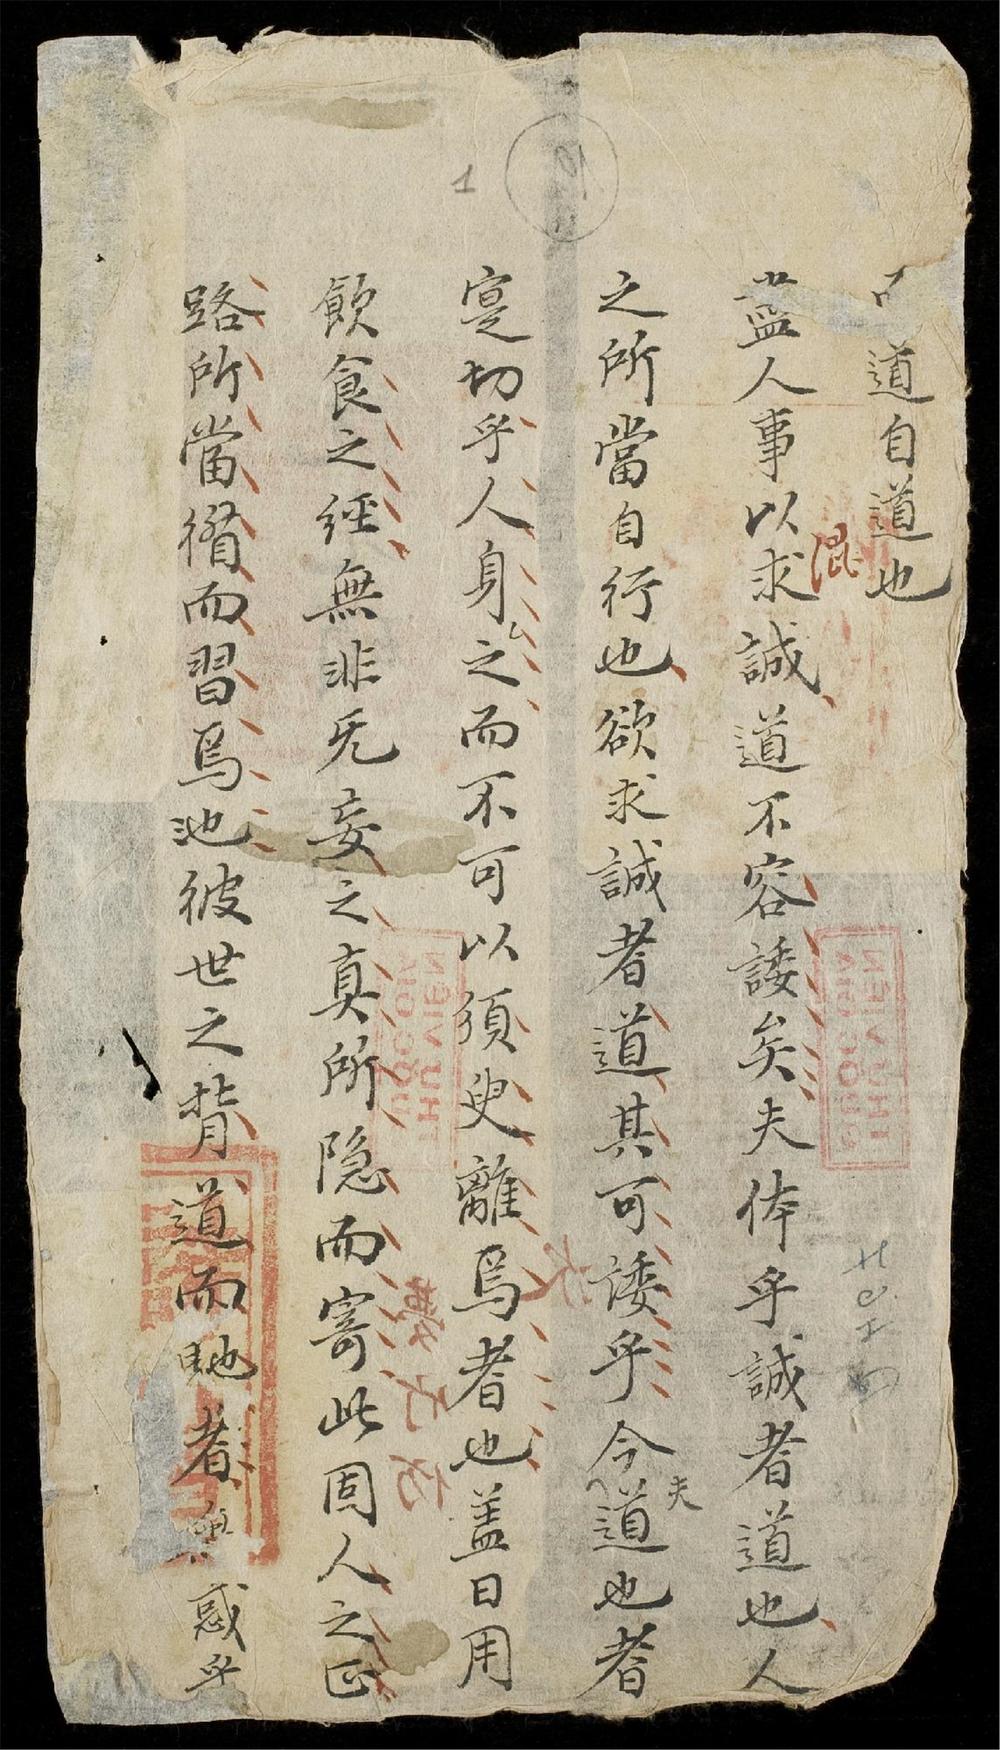 道自道也
盡人事以求誠道不容諉矣夫体乎誠者道也人
之所當自行也欲求誠者道其可諉乎今夫道也者
寔切乎人身之而不可以須臾離焉者也盖日用
飲食之經無非无妄之真所隐而寄此固人之正
路所當循而習焉也彼世之背道而馳者無惑乎
混
1